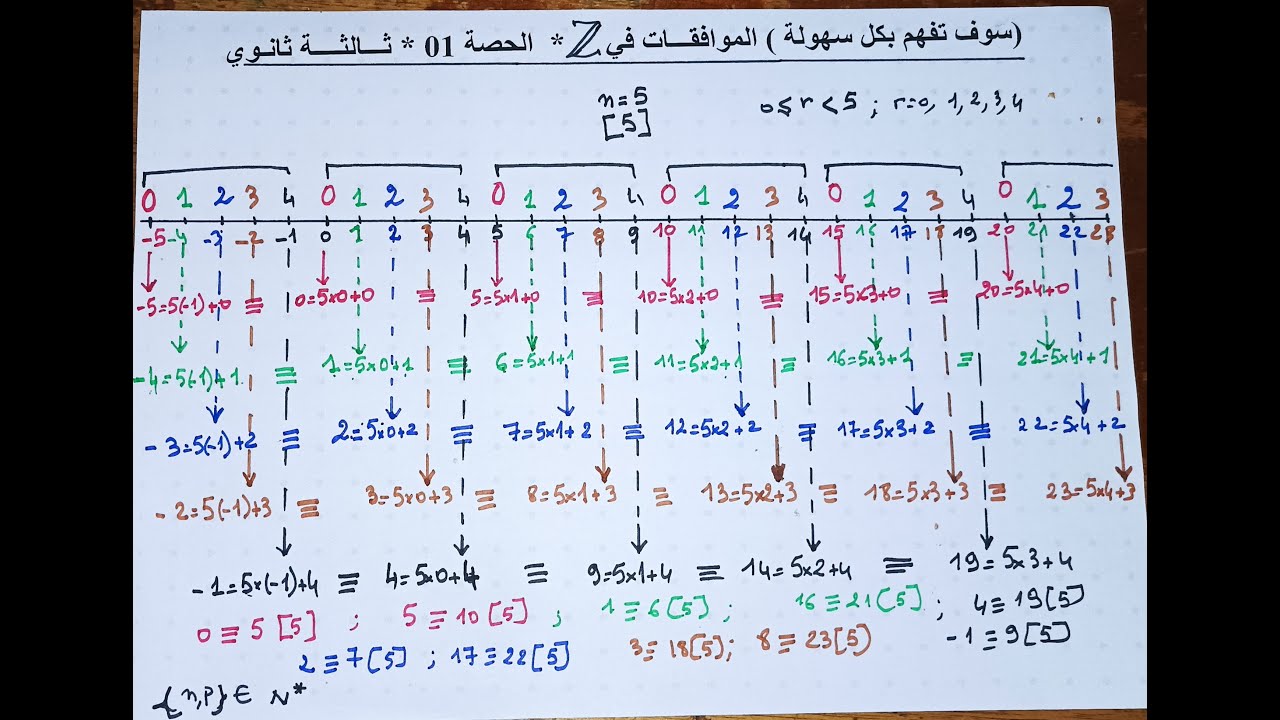 (سوف تفهم بكل سهولة ) الموافقات في ℤ * الحصة 01 * ثالثة ثانوي
n=5 0≤r<5 ; r=0, 1, 2, 3, 4
[5]
0 1 2 3 4 0 1 2 3 4 0 1 2 3 4 0 1 2 3 4 0 1 2 3 4 0 1 2 3
-5 -4 -3 -2 -1 0 1 2 3 4 5 6 7 8 9 10 11 12 13 14 15 16 17 18 19 20 21 22 23
-5=5(-1)+0 ≡ 0=5x0+0 ≡ 5=5x1+0 ≡ 10=5x2+0 ≡ 15=5x3+0 ≡ 20=5x4+0
-4=5(-1)+1 ≡ 1=5x0+1 ≡ 6=5x1+1 ≡ 11=5x2+1 ≡ 16=5x3+1 ≡ 21=5x4+1
-3=5(-1)+2 ≡ 2=5x0+2 ≡ 7=5x1+2 ≡ 12=5x2+2 ≡ 17=5x3+2 ≡ 22=5x4+2
-2=5(-1)+3 ≡ 3=5x0+3 ≡ 8=5x1+3 ≡ 13=5x2+3 ≡ 18=5x3+3 ≡ 23=5x4+3
-1=5x(-1)+4 ≡ 4=5x0+4 ≡ 9=5x1+4 ≡ 14=5x2+4 ≡ 19=5x3+4
0≡5[5] ; 5≡10[5] ; 1≡6[5] ; 16≡21[5] ; 4≡19[5]
2≡7[5] ; 17≡22[5] 3≡18[5]; 8≡23[5] -1≡9[5]
{n,p}∈ N*